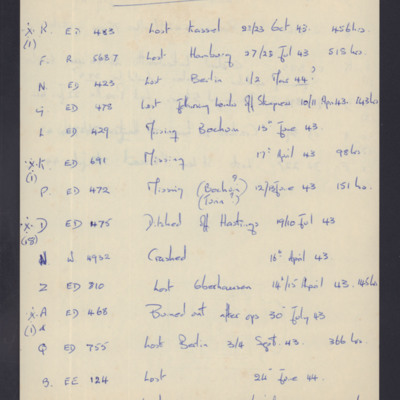 ·x· K. ED 483 Lost Kassel 22/23 Oct 43. 456 hrs.
(1)
F. R 5687 Lost Hamburg 27/28 Jul 43 515 hrs.
N ED 423 Lost Berlin 1/2 Mar 44?
G ED 478 Lost off Skegness 10/11 Apr 43. 243 hrs
L ED 429 Missing Bochum 13th June 43.
·x· K. ED 691 Missing 17th April 43 98 hrs
(1)
P. ED 472 Missing (Bochum?) 12/13 June 43 151 hrs.
·x· D ED 475 Ditched off Hastings 9/10 Jul 43
(18)
N W 4932 Crashed 16th April 43.
Z ED 810 Lost Oberhausen 14th/15th April 43. 145 hrs
·x· A ED 468 Burned out after ops 30th July 43
(1)
Q ED 755 Lost Berlin 3/4 Sept. 43. 366 hrs.
B. EE 124 Lost 24th June 44.